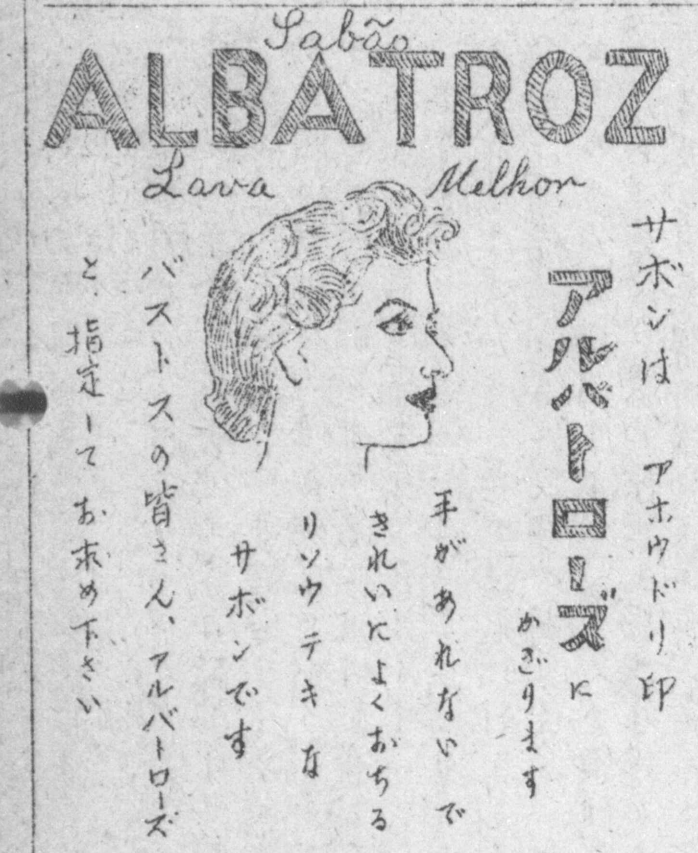 Sabão
ALBATROZ
Lava Melhor
サボンは アホウドリ印
アルバトローズに
かぎります
手があれないで
きれいによくおちる
リソウテキな
サボンです
バストスの皆さん、アルバトローズ
と、指定してお求め下さい